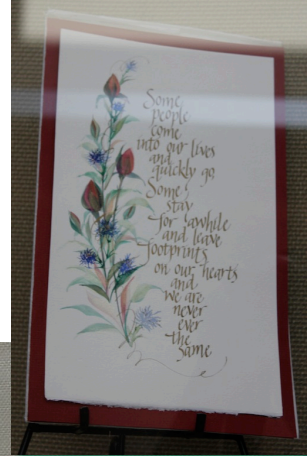 Some
people
come
into our lives
and
quickly go
Some
stay
for awhile
and leave
footprints
on our hearts
and
we are
never
ever
the
same